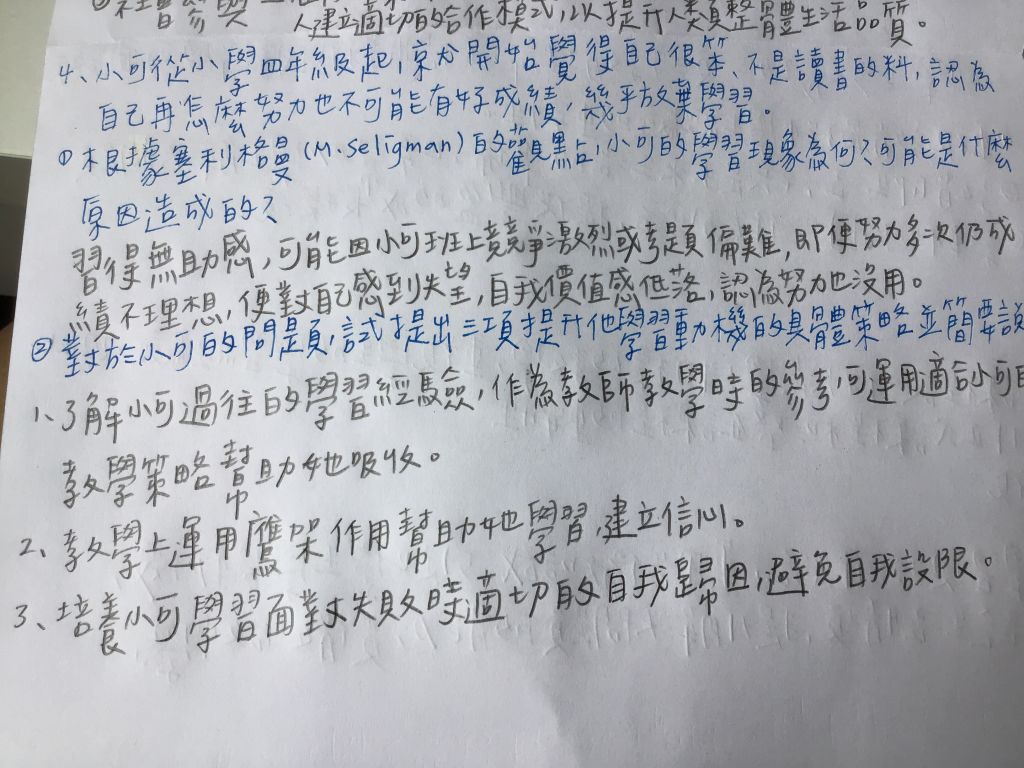 人建立適切的合作模式,以提升人類整體生活品質。
4、小可從小學四年級起,就開始覺得自己很笨、不是讀書的料,認為
自己再怎麼努力也不可能有好成績,幾乎放棄學習。
① 根據塞利格曼(M.Seligman)的觀點,小可的學習現象為何?可能是什麼
原因造成的?
習得無助感,可能因小可班上競爭激烈或考題偏難,即便努力多次仍成
績不理想,便對自己感到失望,自我價值感低落,認為努力也沒用。
② 對於小可的問題,試提出三項提升他學習動機的具體策略並簡要說
1、了解小可過往的學習經驗,作為教師教學時的參考,可運用適合小可的
教學策略幫助她吸收。
2、教學上運用鷹架作用幫助她學習,建立信心。
3、培養小可學習面對失敗時適切的自我歸因,避免自我設限。